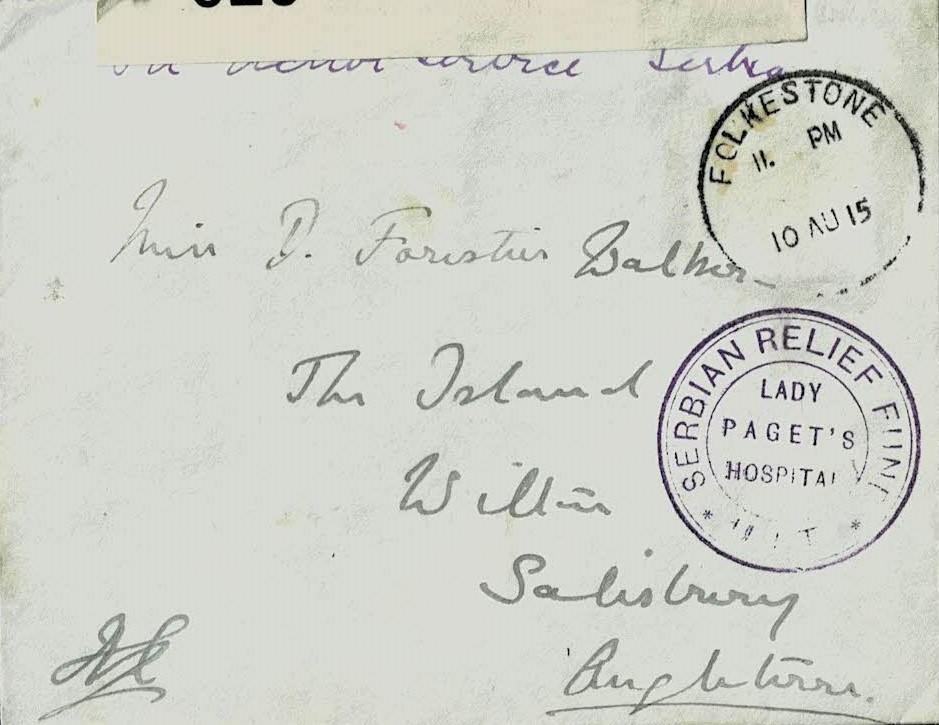 service Serbia
FOLKESTONE
11. PM
10 AU 15
Miss D. Forestier Walker
The Island
SERBIAN RELIEF FUND
LADY
PAGET'S
HOSPITAL
Wilton
Salisbury
Angleterre.